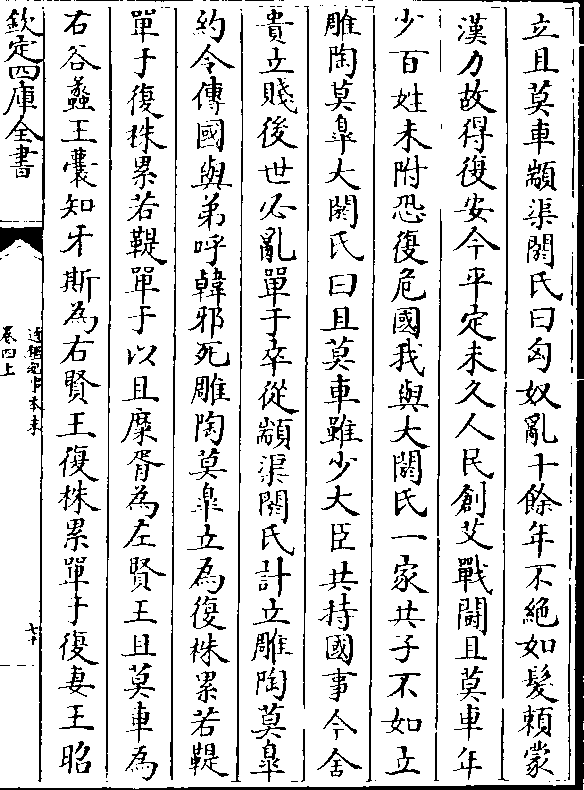 立且莫車顓渠閼氏曰匈奴亂十餘年不絶如髮頼蒙
漢力故得復安今平定未久人民創艾戰鬭且莫車年
少百姓未附恐復危國我與大閼氏一家共子不如立
雕陶莫臯大閼氏曰且莫車雖少大臣共持國事今舍
貴立賤後世必亂單于卒從顓渠閼氏計立雕陶莫臯
約令傳國與弟呼韓邪死雕陶莫臯立為復株累若鞮
單于復株累若鞮單于以且糜胥為左賢王且莫車為
右谷蠡王囊知牙斯為右賢王復株累單于復妻王昭
欽定四庫全書
通鑑紀事本末
卷四上